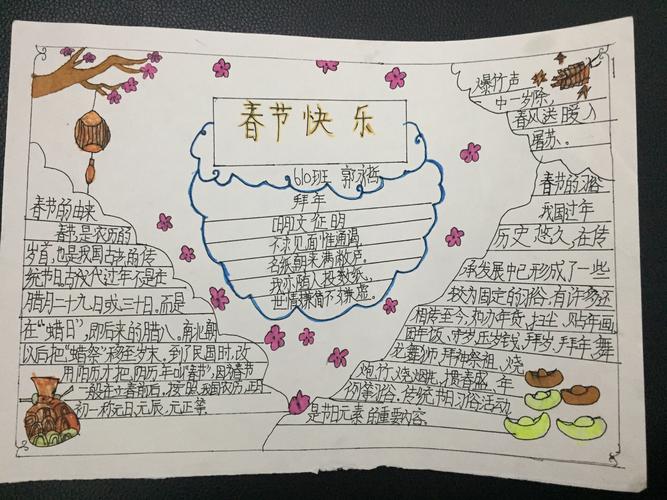 春节快乐
610班 郭永哲
拜年
明文征明
不求见面惟通谒
名纸朝来满敝庐
我亦随人投数纸
世情嫌简不嫌虚。
春节的由来
春节是农历的
岁首,也是我国古老的传
统节日古代过年不是在
腊月二十九日或三十日,而是
在“蜡日”,即后来的腊八。南北朝
以后把“蜡祭”移至岁末。到了民国时,改
用阳历才把阴历年叫“春节”,因为春节
一般在立春前后,按照我国农历,正月
初一称元日、元辰、元正等
爆竹声
中一岁除,
春风送暖入
屠苏。
春节的习俗
我国过年
历史悠久,在传
承发展中已形成了一些
较为固定的习俗,有许多还
相传至今,如办年货、扫尘、贴年画
团年饭、守岁、压岁钱、拜岁、拜年、舞
龙舞狮、拜神祭祖、烧
炮竹、烧烟花、掼春盛、年
例等习俗、传统节日习俗活动
是节日元素的重要内容。